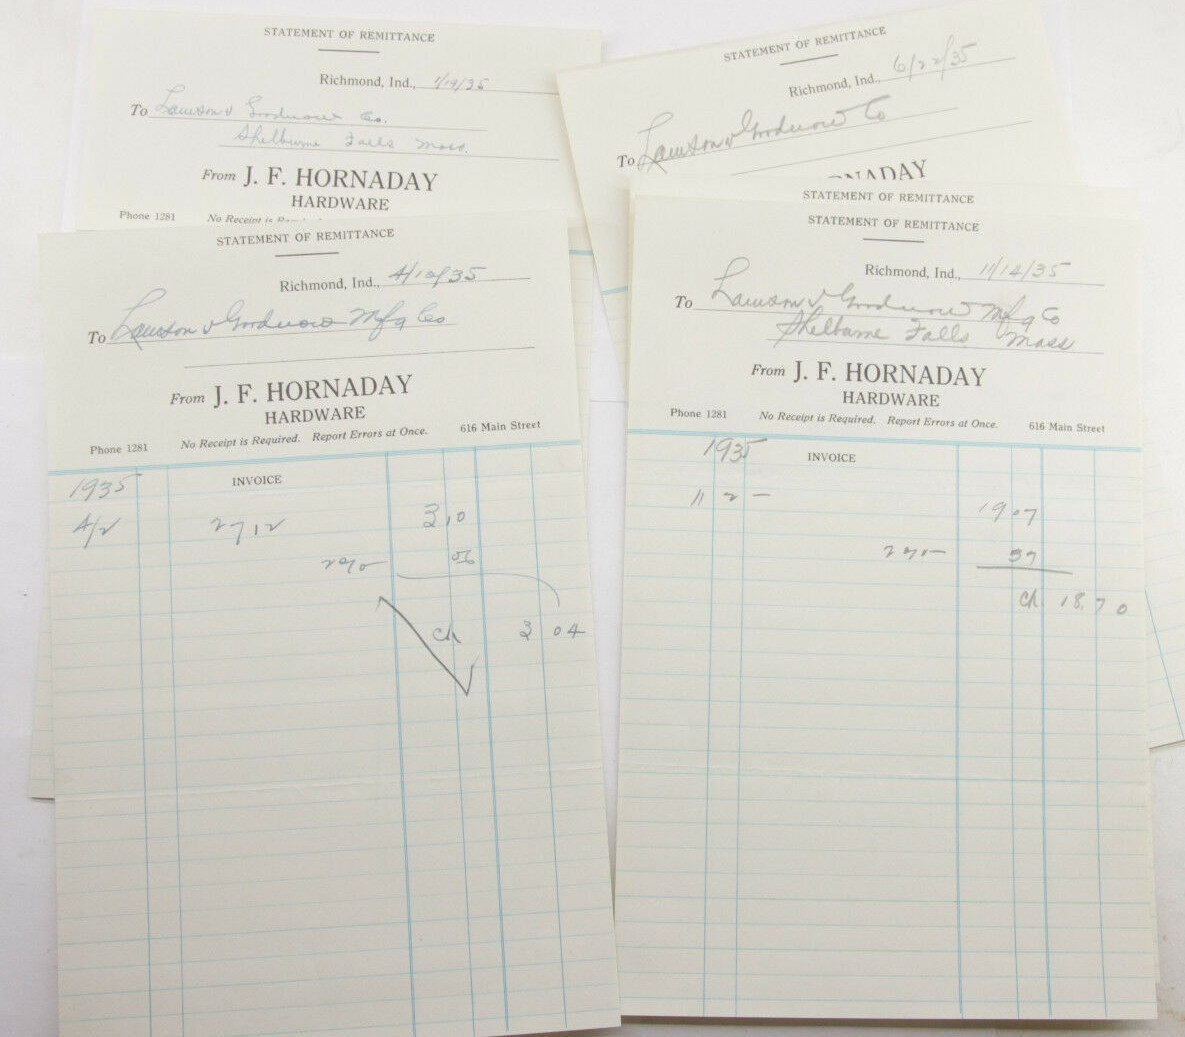 STATEMENT OF REMITTANCE
Richmond, Ind., 1/19/35
To Lamson & Goodnow Co.
Shelburne Falls Mass.
From J. F. HORNADAY
HARDWARE
Phone 1281 No Receipt is
STATEMENT OF REMITTANCE
Richmond, Ind., 6/22/35
To Lamson & Goodnow Co
STATEMENT OF REMITTANCE
Richmond, Ind., 4/10/35
To Lamson & Goodnow Mfg Co
From J. F. HORNADAY
HARDWARE
Phone 1281 No Receipt is Required. Report Errors at Once. 616 Main Street
1935 INVOICE
4/2 2712 3 10
2% 06
Ch 3 04
STATEMENT OF REMITTANCE
STATEMENT OF REMITTANCE
Richmond, Ind., 11/14/35
To Lamson & Goodnow Mfg Co
Shelburne Falls Mass
From J. F. HORNADAY
HARDWARE
Phone 1281 No Receipt is Required. Report Errors at Once. 616 Main Street
1935 INVOICE
11 2 — 19 07
2% — 37
Ch 18.70